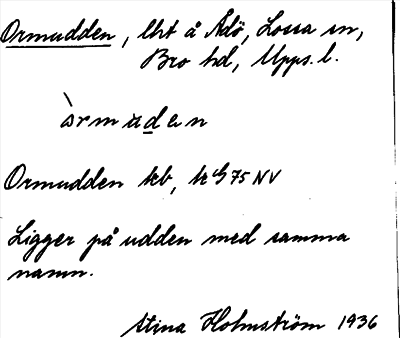 Ormudden, lht å Ådö, Lossa sn,
Bro hd, Upps. l.
òrmuden
Ormudden kb, k G 75 NV
Ligger på udden med samma
namn.
Stina Holmström 1936